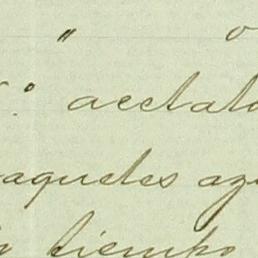 " o
° acetato
aquetes az
tiempo